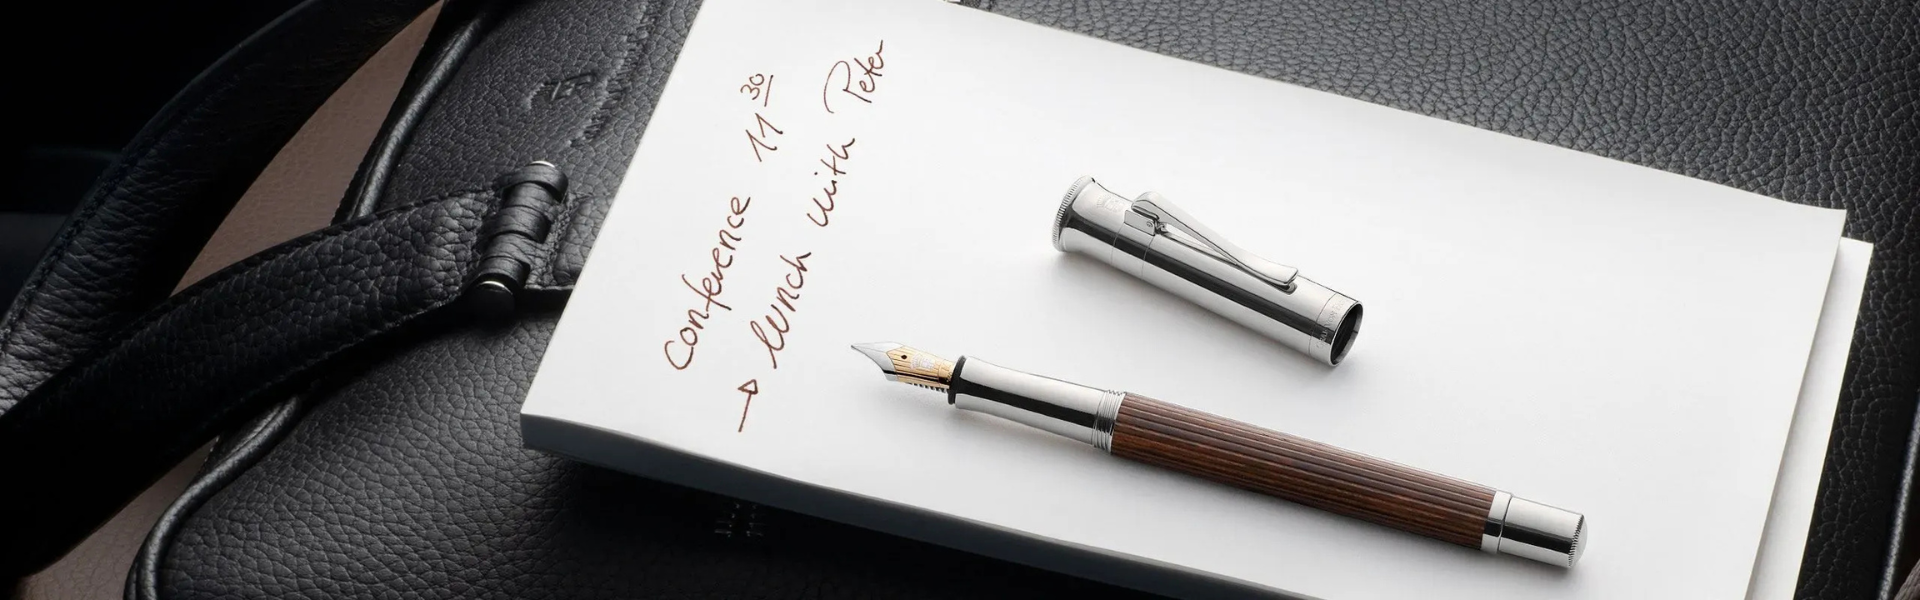 Conference 11 30
→ lunch with Peter